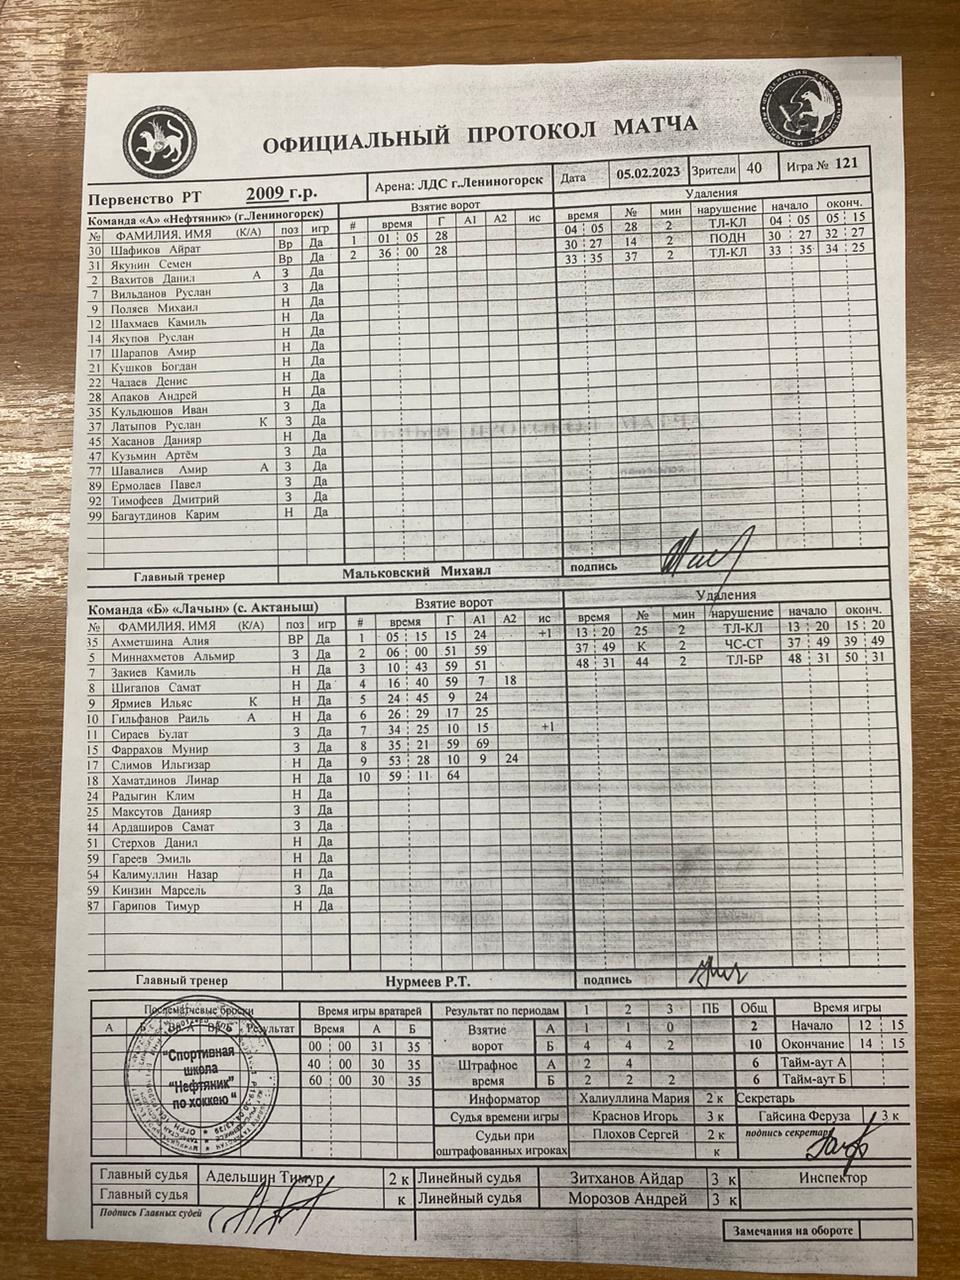 ОФИЦИАЛЬНЫЙ ПРОТОКОЛ МАТЧА
Первенство РТ 2009 г.р. Арена: ЛДС г.Лениногорск Дата 05.02.2023 Зрители 40 Игра № 121
Команда «А» «Нефтяник» (г.Лениногорск) Взятие ворот Удаления
№ ФАМИЛИЯ, ИМЯ (К/А) поз игр # время Г А1 А2 ис время № мин нарушение начало оконч.
30 Шафиков Айрат Вр Да 1 01 05 28 04 05 28 2 ТЛ-КЛ 04 05 05 15
31 Якунин Семен Вр Да 2 36 00 28 30 27 14 2 ПОДН 30 27 32 27
2 Вахитов Данил А З Да 33 35 37 2 ТЛ-КЛ 33 35 34 25
7 Вильданов Руслан З Да
9 Поляев Михаил Н Да
12 Шахмаев Камиль Н Да
14 Якупов Руслан Н Да
17 Шарапов Амир Н Да
21 Кушков Богдан Н Да
22 Чадаев Денис Н Да
28 Апаков Андрей Н Да
35 Кульдюшов Иван З Да
37 Латыпов Руслан К З Да
45 Хасанов Данияр Н Да
47 Кузьмин Артём З Да
77 Шавалиев Амир А З Да
89 Ермолаев Павел З Да
92 Тимофеев Дмитрий З Да
99 Багаутдинов Карим Н Да
Главный тренер Мальковский Михаил подпись
Команда «Б» «Лачын» (с. Актаныш) Взятие ворот Удаления
№ ФАМИЛИЯ, ИМЯ (К/А) поз игр # время Г А1 А2 ис время № мин нарушение начало оконч.
35 Ахметшина Алия ВР Да 1 05 15 15 24 +1 13 20 25 2 ТЛ-КЛ 13 20 15 20
5 Миннахметов Альмир З Да 2 06 00 51 59 37 49 К 2 ЧС-СТ 37 49 39 49
7 Закиев Камиль Н Да 3 10 43 59 51 48 31 44 2 ТЛ-БР 48 31 50 31
8 Шигапов Самат Н Да 4 16 40 59 7 18
9 Ярмиев Ильяс К Н Да 5 24 45 9 24
10 Гильфанов Раиль А Н Да 6 26 29 17 25
11 Сираев Булат З Да 7 34 25 10 15 +1
15 Фаррахов Мунир З Да 8 35 21 59 69
17 Слимов Ильгизар Н Да 9 53 28 10 9 24
18 Хаматдинов Линар Н Да 10 59 11 64
24 Радыгин Клим Н Да
25 Максутов Данияр З Да
44 Ардаширов Самат З Да
51 Стерхов Данил Н Да
59 Гареев Эмиль Н Да
54 Калимуллин Назар Н Да
59 Кинзин Марсель З Да
87 Гарипов Тимур Н Да
Главный тренер Нурмеев Р.Т. подпись
Послематчевые броски Время игры вратарей Результат по периодам 1 2 3 ПБ Общ Время игры
А Б Результат Время А Б Взятие ворот А 1 1 0 2 Начало 12 15
00 00 31 35 Б 4 4 2 10 Окончание 14 15
40 00 30 35 Штрафное время А 2 4 6 Тайм-аут А
60 00 30 35 Б 2 2 2 6 Тайм-аут Б
"Спортивная
школа
"Нефтяник"
по хоккею"
Информатор Халиуллина Мария 2 к Секретарь
Судья времени игры Краснов Игорь 3 к Гайсина Феруза 3 к
Судьи при оштрафованных игроках Плохов Сергей 2 к подпись секретаря
к
Главный судья Адельшин Тимур 2 к Линейный судья Зитханов Айдар 3 к Инспектор
Главный судья к Линейный судья Морозов Андрей 3 к
Подпись Главных судей
Замечания на обороте